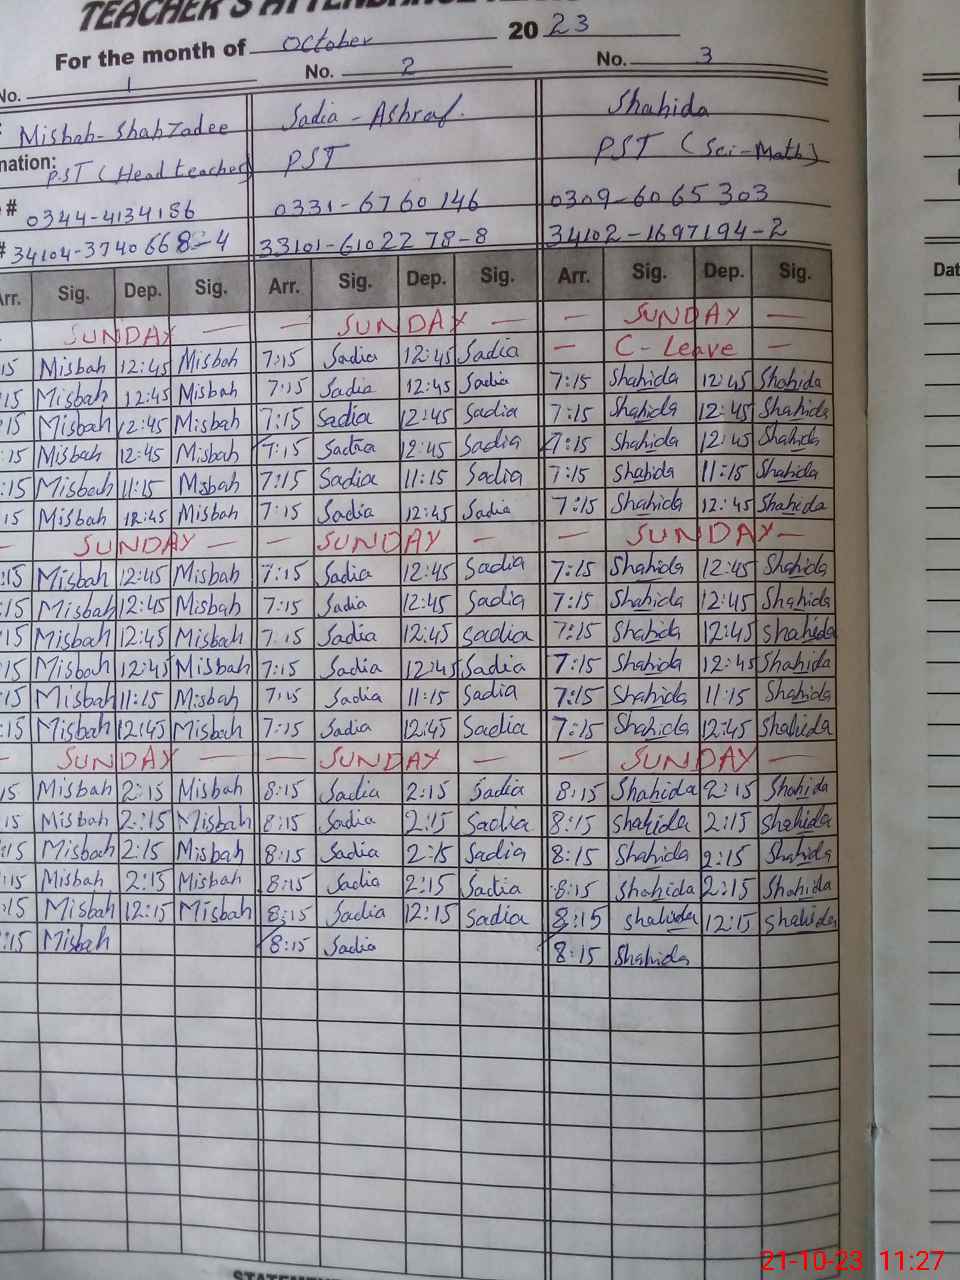 TEACHER'S ATTENDANCE
For the month of October 20 23
No. 1 No. 2 No. 3
Misbah-Shahzadee Sadia-Ashraf. Shahida
nation: PST (Head teacher) PST PST (Sci-Math)
# 0344-4134186 0331-6760146 0309-6065303
# 34104-3740668-4 33101-6102278-8 34102-1697194-2
Arr. Sig. Dep. Sig. Arr. Sig. Dep. Sig. Arr. Sig. Dep. Sig.
SUNDAY — — SUNDAY — — SUNDAY —
15 Misbah 12:45 Misbah 7:15 Sadia 12:45 Sadia — C-Leave —
15 Misbah 12:45 Misbah 7:15 Sadia 12:45 Sadia 7:15 Shahida 12:45 Shahida
:15 Misbah 12:45 Misbah 7:15 Sadia 12:45 Sadia 7:15 Shahida 12:45 Shahida
:15 Misbah 12:45 Misbah 7:15 Sadia 12:45 Sadia 7:15 Shahida 12:45 Shahida
:15 Misbah 11:15 Misbah 7:15 Sadia 11:15 Sadia 7:15 Shahida 11:15 Shahida
15 Misbah 12:45 Misbah 7:15 Sadia 12:45 Sadia 7:15 Shahida 12:45 Shahida
— SUNDAY — — SUNDAY — — SUNDAY —
:15 Misbah 12:45 Misbah 7:15 Sadia 12:45 Sadia 7:15 Shahida 12:45 Shahida
:15 Misbah 12:45 Misbah 7:15 Sadia 12:45 Sadia 7:15 Shahida 12:45 Shahida
:15 Misbah 12:45 Misbah 7:15 Sadia 12:45 Sadia 7:15 Shahida 12:45 Shahida
15 Misbah 12:45 Misbah 7:15 Sadia 12:45 Sadia 7:15 Shahida 12:45 Shahida
15 Misbah 11:15 Misbah 7:15 Sadia 11:15 Sadia 7:15 Shahida 11:15 Shahida
:15 Misbah 12:45 Misbah 7:15 Sadia 12:45 Sadia 7:15 Shahida 12:45 Shahida
— SUNDAY — — SUNDAY — — SUNDAY —
15 Misbah 2:15 Misbah 8:15 Sadia 2:15 Sadia 8:15 Shahida 2:15 Shahida
15 Misbah 2:15 Misbah 8:15 Sadia 2:15 Sadia 8:15 Shahida 2:15 Shahida
:15 Misbah 2:15 Misbah 8:15 Sadia 2:15 Sadia 8:15 Shahida 2:15 Shahida
:15 Misbah 2:15 Misbah 8:15 Sadia 2:15 Sadia 8:15 Shahida 2:15 Shahida
:15 Misbah 12:15 Misbah 8:15 Sadia 12:15 Sadia 8:15 Shahida 12:15 Shahida
:15 Misbah 8:15 Sadia 8:15 Shahida
Dat
21-10-23 11:27